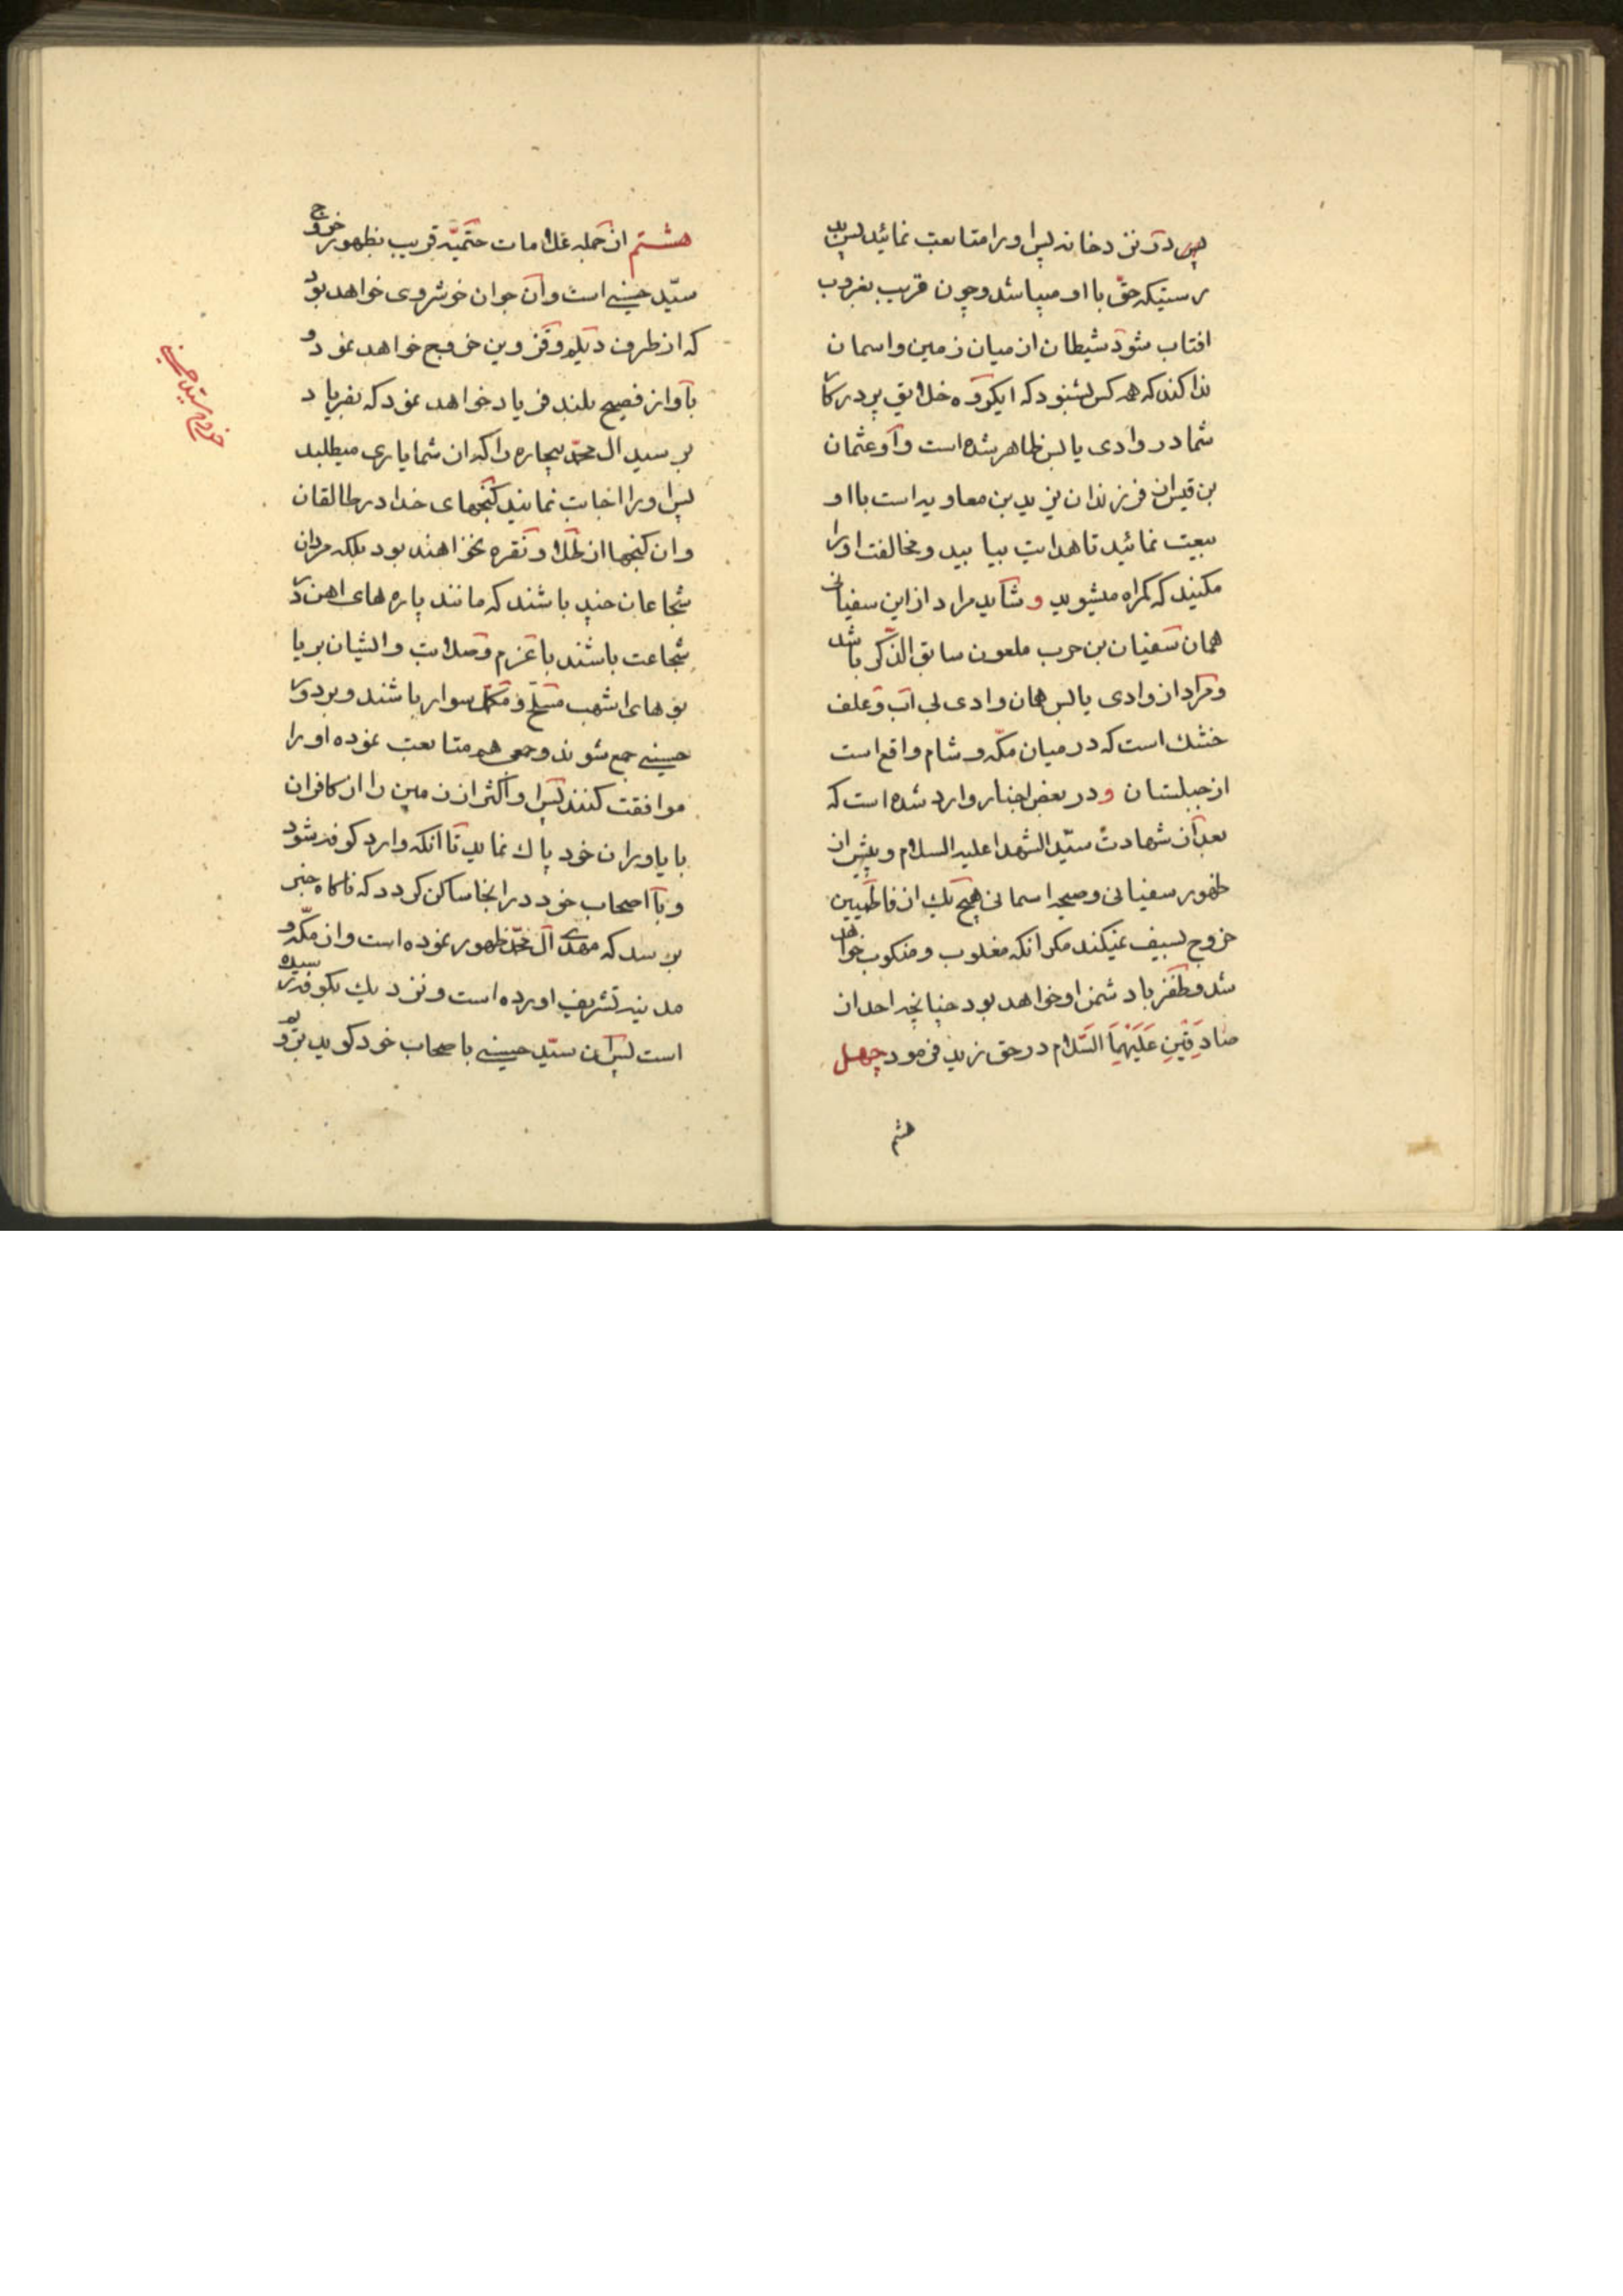 در نزد خانه پس او را متابعت نمائید پس
رستیکه حق با او میباشد و چون قریب بغروب
افتاب شود شیطان از میان زمین و اسمان
ندا کند که هر کس بشنود که ایکروه خلایق پروردکا
شما در وادی یابس ظاهر شده است و او عثمان
بن قیس از فرزندان یزید بن معاویه است با او
بیعت نمائید تا هدایت بیابید و مخالفت او را
مکنید که کمراه میشوید و شاید مراد از این سفیانی
همان سفیان بن حرب ملعون سابق الذکر باشد
و مراد از وادی یابس همان وادی بی آب و علف
خشک است که در میان مکّه و شام واقع است
از جبلستان و در بعض اخبار وارد شده است که
بعد از شهادت سیّد الشهدا علیه السلام و پیش از
ظهور سفیانی و صیحه اسمانی هیچ یک از فاطمیین
خروج بسیف نمیکند مکر انکه مغلوب و منکوب خواهد
شد و ظفر با دشمن او خواهد بود چنانچه احد از
صادَقَینِ عَلَیْهِمَا السَّلام در حق زید فرمود چهل
هشم
هشتم از جمله علامات حتمیّه قریب بظهور خروج
سیّد حسنی است و آن جوان خوشروی خواهد بود
که از طرف دیلم و قزوین خروج خواهد نمود و
بآواز فصیح بلند فریاد خواهد نمود که بفریاد
برسید ال محمّد بیچاره را که از شما یاری میطلبد
پس او را اجابت نمایند کنجهای خدا در طالقان
و ان کنجها از طلا و نقره نخواهند بود بلکه مردان
شجاعان چند باشند که مانند پاره های اهن در
شجاعت باشند با عزم و صلابت و ایشان بر یا
بوهای اشهب مسلح و مکمّل سوار باشند و بر دور
حسینی جمع شوند و جمعی هم متابعت نموده او را
موافقت کنند پس او اکثر از زمین را از کافران
با یاوران خود پاک نماید تا آنکه وارد کوفه شود
و با اصحاب خود در انجا ساکن کردد که ناکاه خبر
برسد که مهدی آل محمّد ظهور نموده است و از مکّه و
مدینه تشریف اورده است و نزدیک بکوفه رسیده
است پس آن سیّد حسینی با صحاب خود کوید برو
خروج سید حسنی